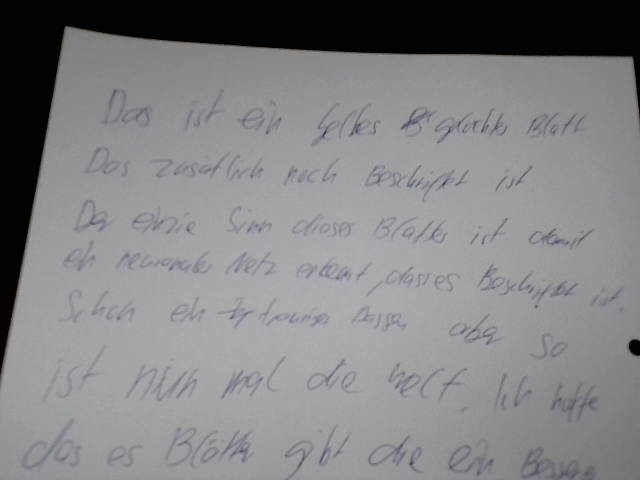 Das ist ein gelbes gelochtes Blatt
Das zusätlich noch Beschriftet ist
Der einzie Sinn dieses Blattes ist damit
ein neuronales Netz erkennt, dass es Beschriftet ist.
Schon ein trauriges aber so
ist nun mal die Welt. Ich hoffe
das es Blätter gibt die ein Besseres